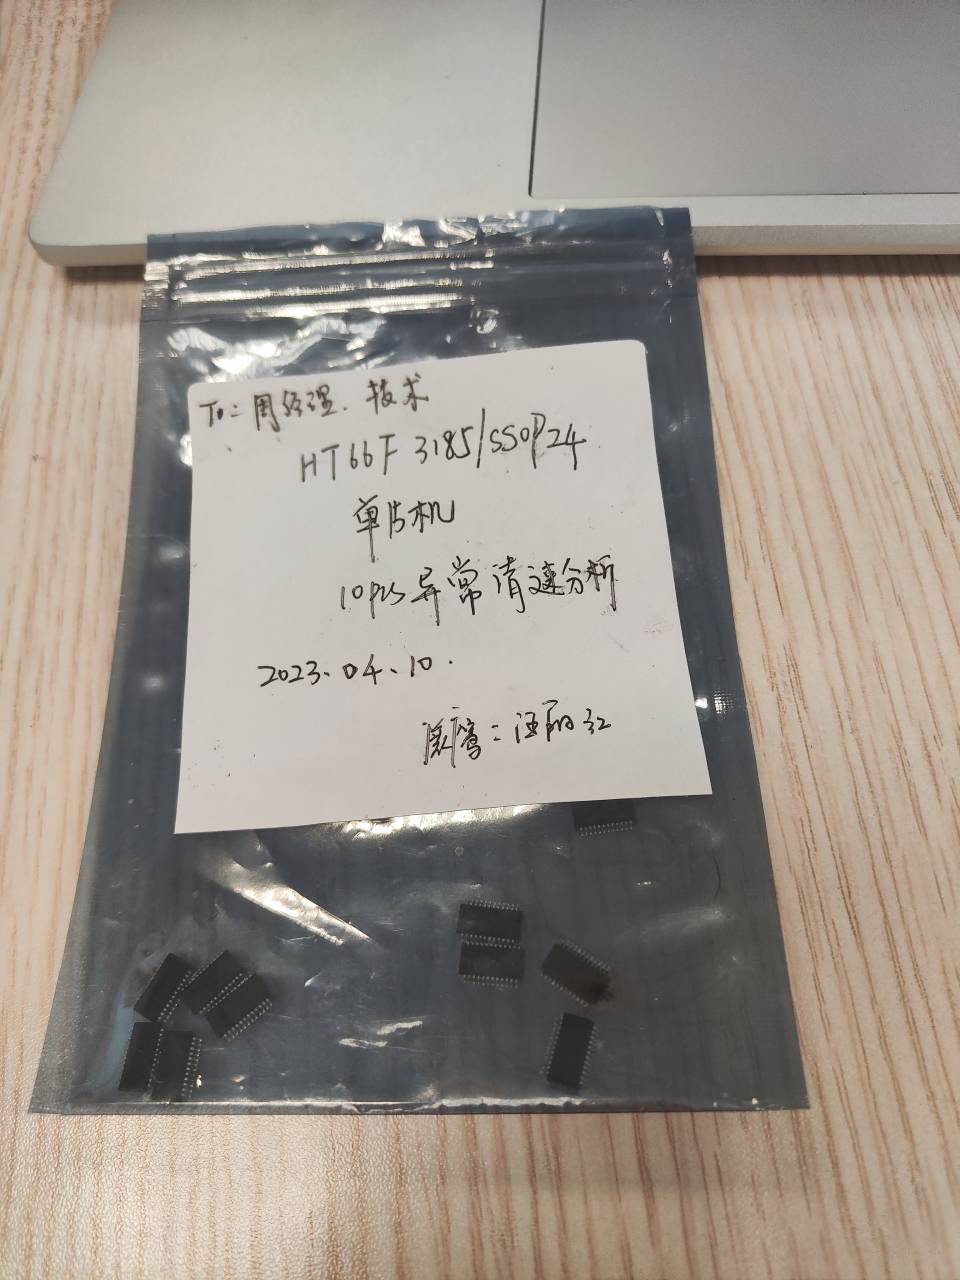 To: 周经理. 技术
HT66F3185/SSOP24
单片机
10pcs异常请速分析
2023.04.10.
: 汪丽红